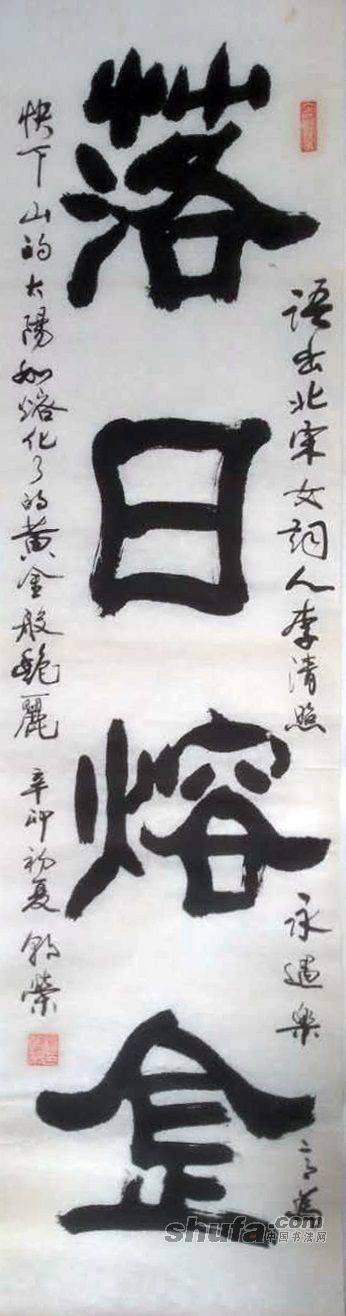 落日熔金
语出北宋女词人李清照 永遇樂 意为
快下山的太陽如熔化了的黄金般艷麗 辛卯初夏 榮
shufa.com
中国书法网